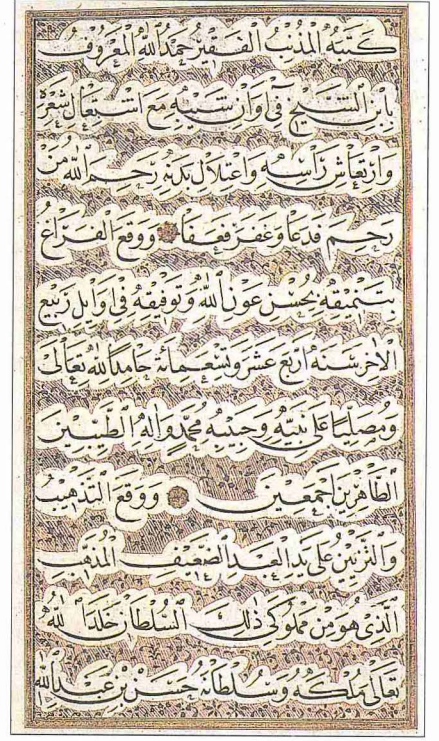 كتبه المذنب الفقير حمد الله المعروف
بابن الشيخ في اوان شيبه مع اشتعال شعره
وارتعاش راسه واعتلال بدنه رحم الله من
رحم فدعا وغفر فعفا ووقع الفراغ
بتنميقه بحسن عون الله وتوفيقه في اوايل ربيع
الاخر سنة اربع عشر وتسعمائة حامدا لله تعالى
ومصليا على نبيه وحبيبه محمد واله الطيبين
الطاهرين اجمعين ووقع التذهيب
والتزيين على يد العبد الضعيف المذهب
الذي هو من مملوكي ذلك السلطان خلد الله
تعالى ملكه وسلطانه حسن بن عبد الله